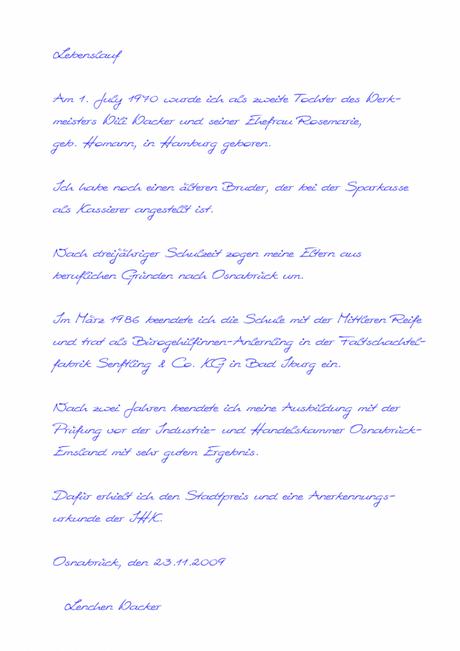 Lebenslauf
Am 1. July 1970 wurde ich als zweite Tochter des Werk-
meisters Willi Wacker und seiner Ehefrau Rosemarie,
geb. Homann, in Hamburg geboren.
Ich habe noch einen älteren Bruder, der bei der Sparkasse
als Kassierer angestellt ist.
Nach dreijähriger Schulzeit zogen meine Eltern aus
beruflichen Gründen nach Osnabrück um.
Im März 1986 beendete ich die Schule mit der Mittleren Reife
und trat als Bürogehilfinnen-Anlernling in der Faltschachtel-
fabrik Senftling & Co. KG in Bad Iburg ein.
Nach zwei Jahren beendete ich meine Ausbildung mit der
Prüfung vor der Industrie- und Handelskammer Osnabrück-
Emsland mit sehr gutem Ergebnis.
Dafür erhielt ich den Stadtpreis und eine Anerkennungs-
urkunde der IHK.
Osnabrück, den 23.11.2009
Lenchen Wacker